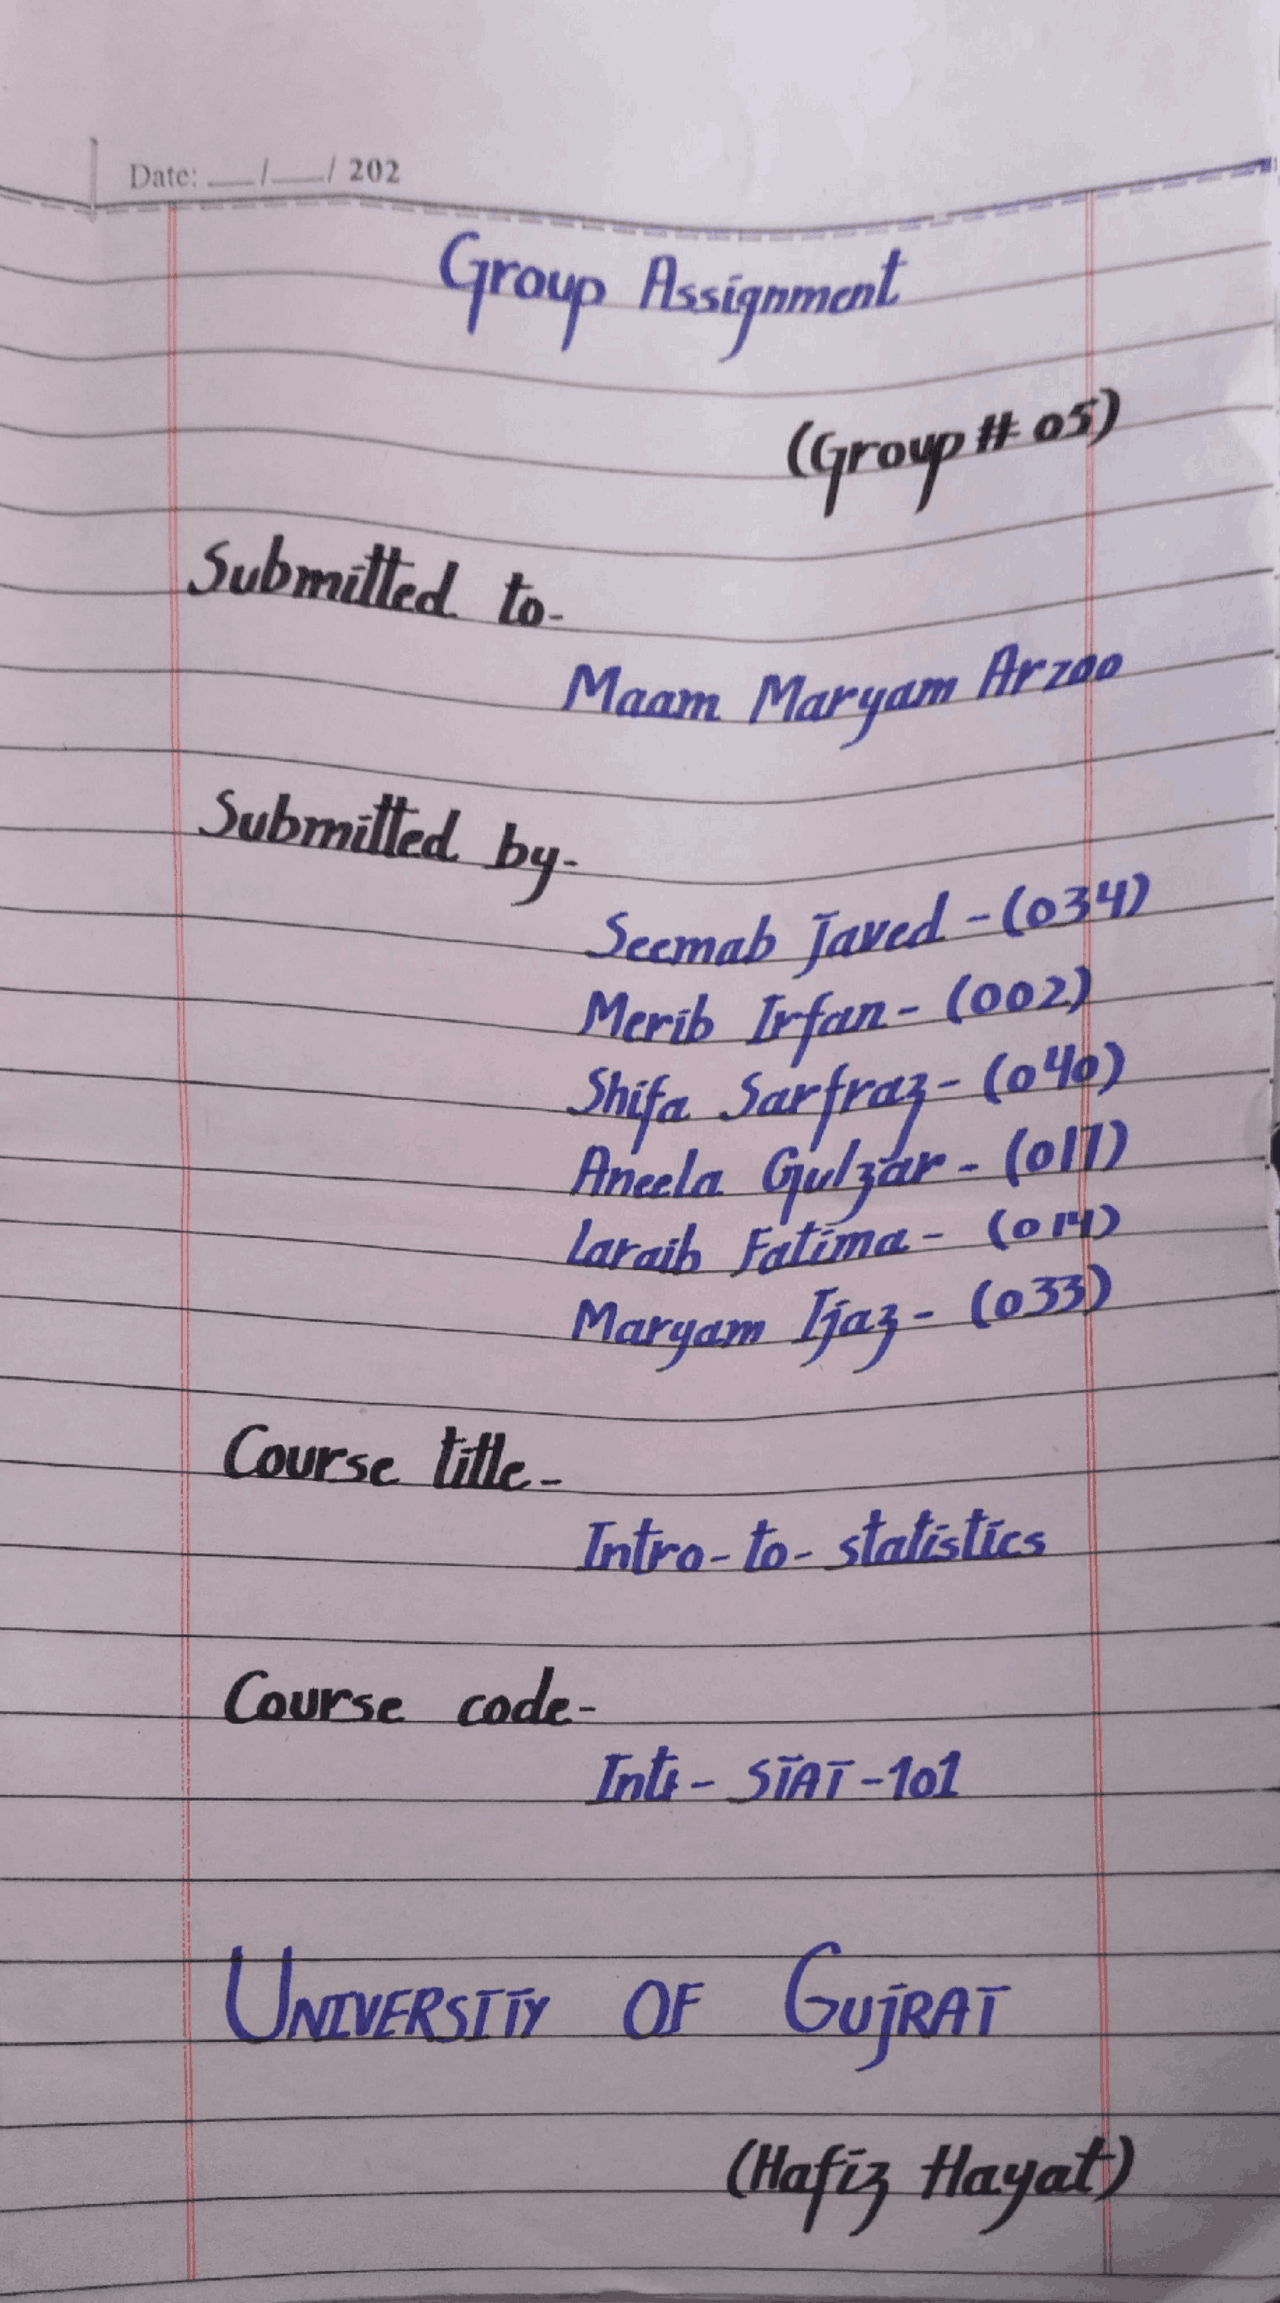 Date: __/__/ 202
Group Assignment
(Group # 05)
Submitted to-
Maam Maryam Arzoo
Submitted by-
Seemab Javed - (034)
Merib Irfan - (002)
Shifa Sarfraz - (040)
Aneela Gulzar - (017)
Laraib Fatima - (014)
Maryam Ijaz - (033)
Course title-
Intro-to-statistics
Course code-
Intr- STAT-101
UNIVERSITIY OF GUJRAT
(Hafiz Hayat)